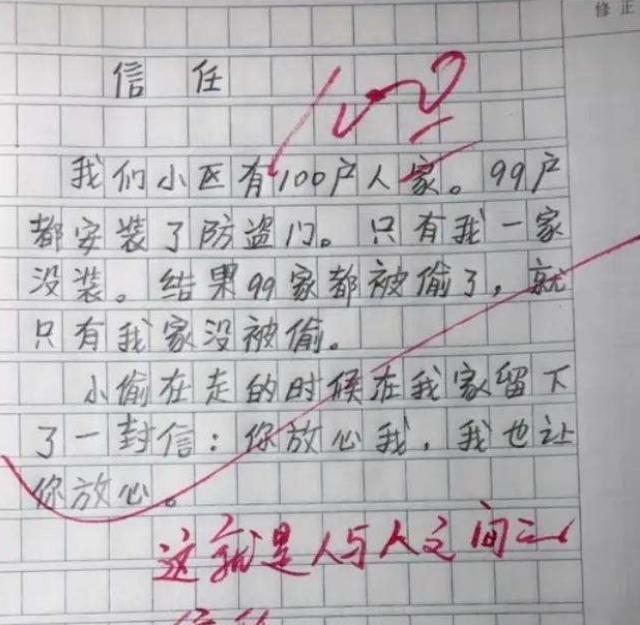 修正
信任
我们小区有100户人家。99户
都安装了防盗门。只有我一家
没装。结果99家都被偷了,就
只有我家没被偷。
小偷在走的时候在我家留下
了一封信:你放心我,我也让
你放心。
这就是人与人之间